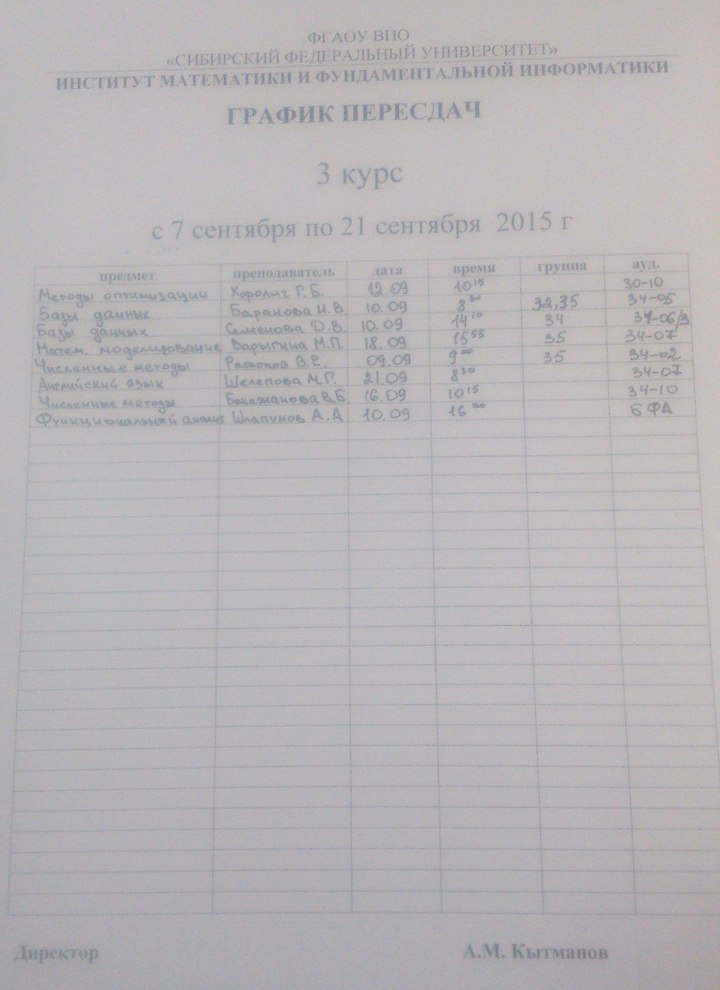 ФГАОУ ВПО
«СИБИРСКИЙ ФЕДЕРАЛЬНЫЙ УНИВЕРСИТЕТ»
ИНСТИТУТ МАТЕМАТИКИ И ФУНДАМЕНТАЛЬНОЙ ИНФОРМАТИКИ
ГРАФИК ПЕРЕСДАЧ
3 курс
с 7 сентября по 21 сентября 2015 г
предмет преподаватель дата время группа ауд.
Методы оптимизации Хоролич Г.Б. 12.09 10¹⁵ 30-10
Базы данных Баранова И.В. 10.09 8³⁰ 32,35 34-05
Базы данных Семенова Д.В. 10.09 14¹⁰ 34 34-06/3
Матем. моделирование Варыгина М.П. 18.09 15⁵⁵ 35 34-07
Численные методы В.Е. 09.09 9⁰⁰ 35 34-02
Английский язык Шелепова М.Г. 21.09 8³⁰ 34-07
Численные методы В.Б. 16.09 10¹⁵ 34-10
Функциональный анализ Шлапунов А.А 10.09 16⁰⁰ Б ФА
Директор А.М. Кытманов